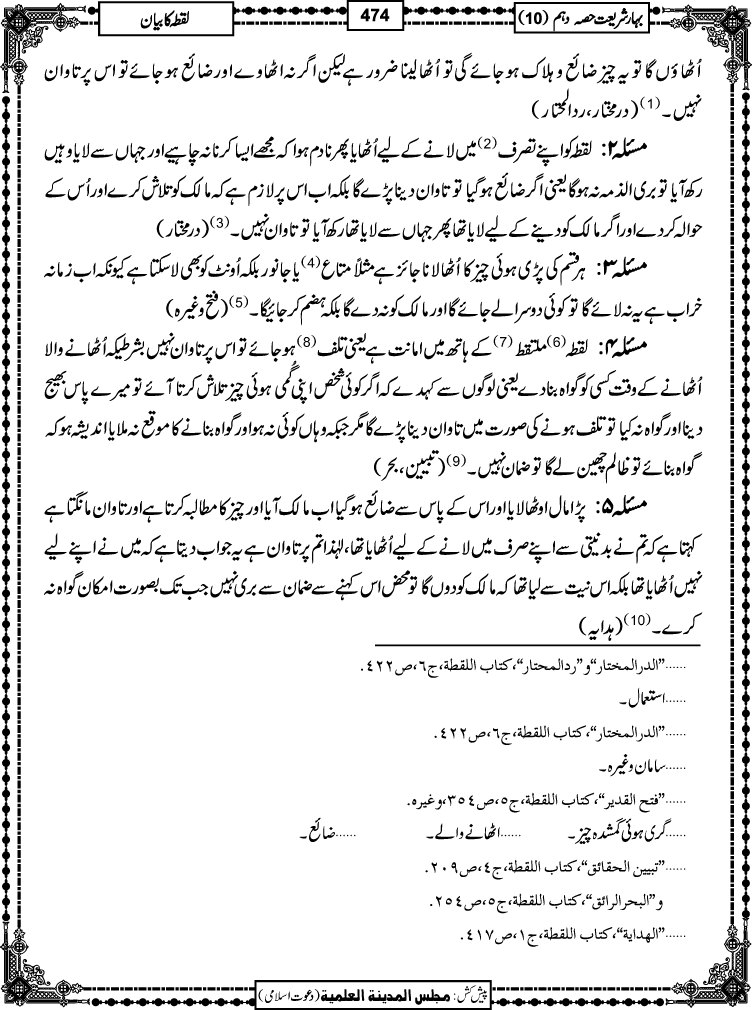 بہارشریعت حصہ دہم (10)
474
لقطہ کا بیان
اُٹھاؤں گا تو یہ چیز ضائع و ہلاک ہو جائے گی تو اُٹھا لینا ضرور ہے لیکن اگر نہ اٹھاوے اور ضائع ہو جائے تو اس پر تاوان
نہیں۔(1) (درمختار، ردالمحتار)
مسئلہ ۲: لقطہ کو اپنے تصرف(2) میں لانے کے لیے اُٹھایا پھر نادم ہوا کہ مجھے ایسا کرنا نہ چاہیے اور جہاں سے لایا وہیں
رکھ آیا تو بری الذمہ نہ ہوگا یعنی اگر ضائع ہوگیا تو تاوان دینا پڑے گا بلکہ اب اس پر لازم ہے کہ مالک کو تلاش کرے اور اُس کے
حوالہ کردے اور اگر مالک کو دینے کے لیے لایا تھا پھر جہاں سے لایا تھا رکھ آیا تو تاوان نہیں۔(3) (درمختار)
مسئلہ ۳: ہر قسم کی پڑی ہوئی چیز کا اُٹھا لانا جائز ہے مثلاً متاع(4) یا جانور بلکہ اُونٹ کو بھی لاسکتا ہے کیونکہ اب زمانہ
خراب ہے یہ نہ لائے گا تو کوئی دوسرا لے جائے گا اور مالک کو نہ دے گا بلکہ ہضم کر جائیگا۔(5) (فتح وغیرہ)
مسئلہ ۴: لقطہ(6) ملتقط(7) کے ہاتھ میں امانت ہے یعنی تلف(8) ہو جائے تو اس پر تاوان نہیں بشرطیکہ اُٹھانے والا
اُٹھانے کے وقت کسی کو گواہ بنا دے یعنی لوگوں سے کہدے کہ اگر کوئی شخص اپنی گمی ہوئی چیز تلاش کرتا آئے تو میرے پاس بھیج
دینا اور گواہ نہ کیا تو تلف ہونے کی صورت میں تاوان دینا پڑے گا مگر جبکہ وہاں کوئی نہ ہو اور گواہ بنانے کا موقع نہ ملا یا اندیشہ ہو کہ
گواہ بنائے تو ظالم چھین لے گا تو ضمان نہیں۔(9) (تبیین، بحر)
مسئلہ ۵: پڑا مال اوٹھا لایا اور اس کے پاس سے ضائع ہوگیا اب مالک آیا اور چیز کا مطالبہ کرتا ہے اور تاوان مانگتا ہے
کہتا ہے کہ تم نے بدنیتی سے اپنے صرف میں لانے کے لیے اُٹھایا تھا، لہٰذا تم پر تاوان ہے یہ جواب دیتا ہے کہ میں نے اپنے لیے
نہیں اُٹھایا تھا بلکہ اس نیت سے لیا تھا کہ مالک کو دوں گا تو محض اس کہنے سے ضمان سے بری نہیں جب تک بصورت امکان گواہ نہ
کرے۔(10) (ہدایہ)
......"الدرالمختار"و"ردالمحتار"،کتاب اللقطة،ج٦،ص٤٢٢.
......استعمال۔
......"الدرالمختار"،کتاب اللقطة،ج٦،ص٤٢٢.
......سامان وغیرہ۔
......"فتح القدیر"،کتاب اللقطة،ج٥،ص٣٥٤،وغیرہ.
......گری ہوئی گمشدہ چیز۔ ......اٹھانے والے۔ ......ضائع۔
......"تبیین الحقائق"،کتاب اللقطة،ج٤،ص٢٠٩.
و"البحرالرائق"،کتاب اللقطة،ج٥،ص٢٥٤.
......"الهدایة"،کتاب اللقطة،ج١،ص٤١٧.
پیش کش: مجلس المدینة العلمیة (دعوت اسلامی)